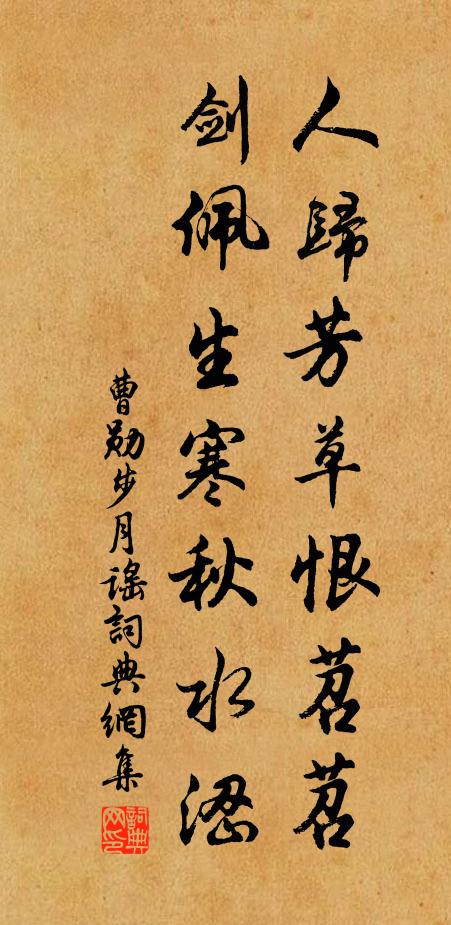 人歸芳草恨苕苕
劍佩生寒秋水
曹勛步月謠詞典網集
詞典网印